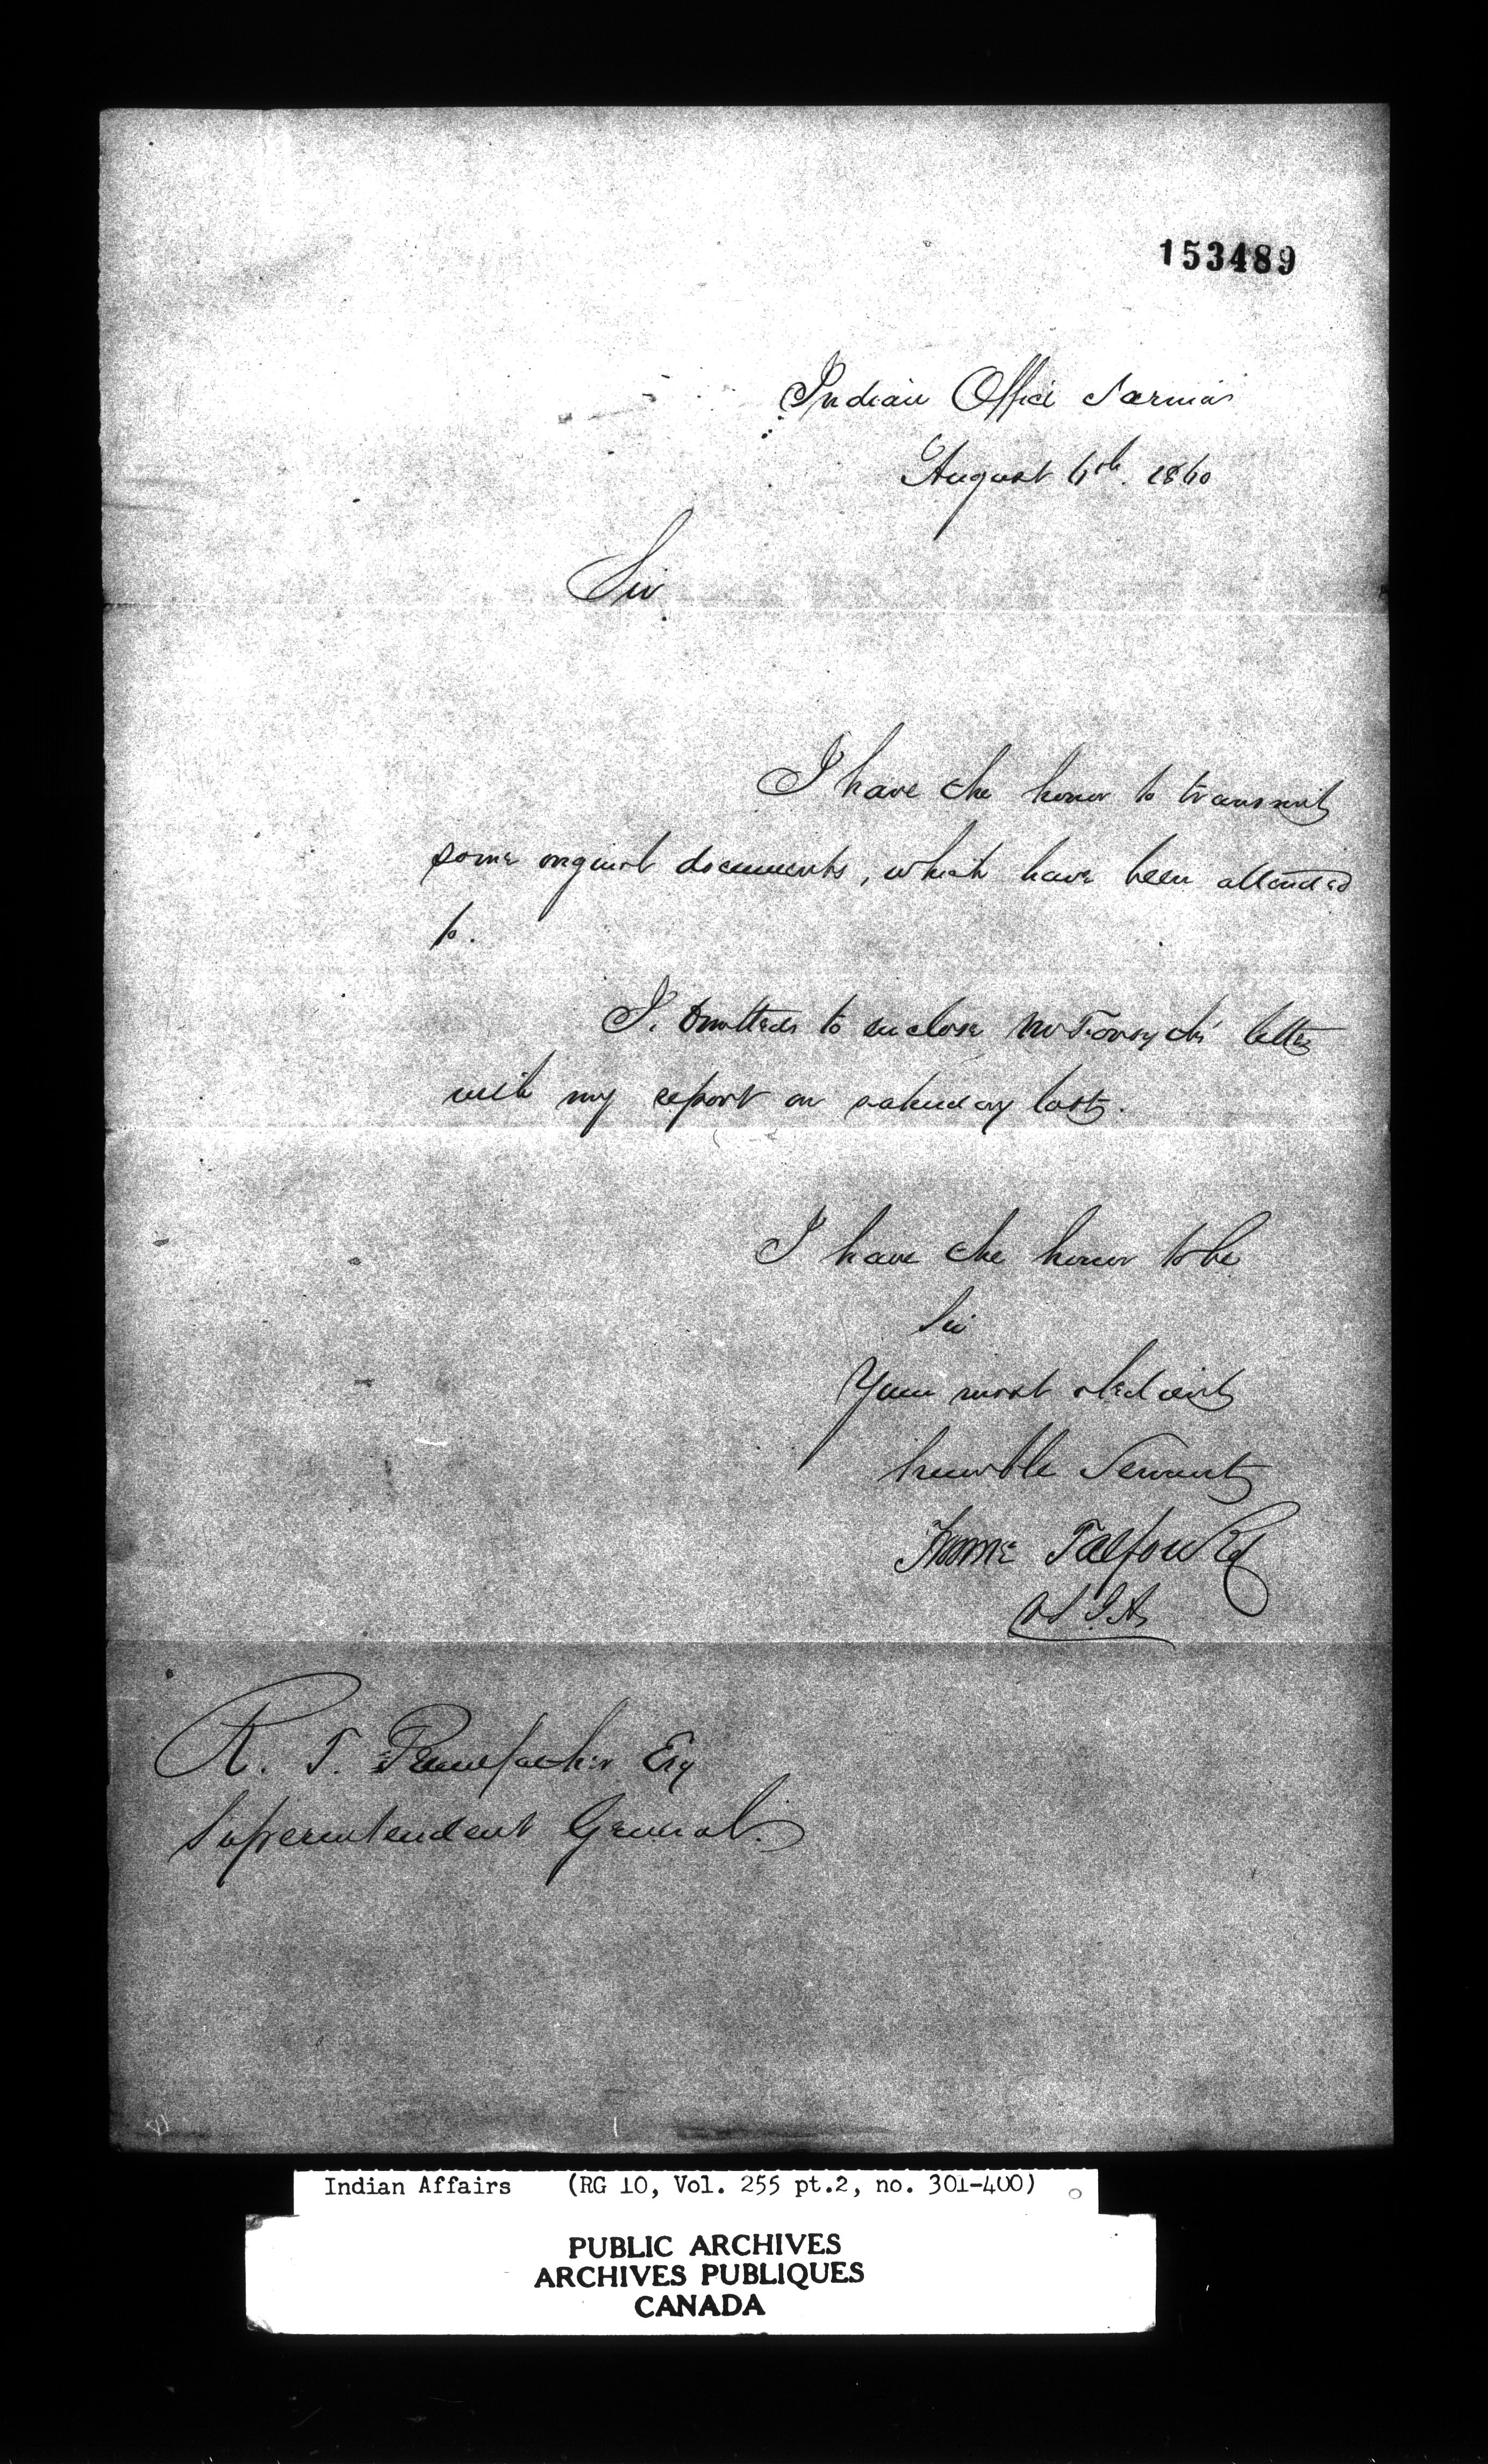 153489
Indian Office Sarnia
August 6th. 1860
Sir
I have the honor to transmit
some original documents, which have been attended
to.
I. Omitted to enclose Mr Forsyth's letter
with my report on saturday last.
I have the honor to be
Sir
Your most obedient
humble Servant
Froome Talfourd
V S I. A
R. T. Pennefather Esq
Superintendent General.
Indian Affairs (RG 10, Vol. 255 pt.2, no. 301-400)
PUBLIC ARCHIVES
ARCHIVES PUBLIQUES
CANADA